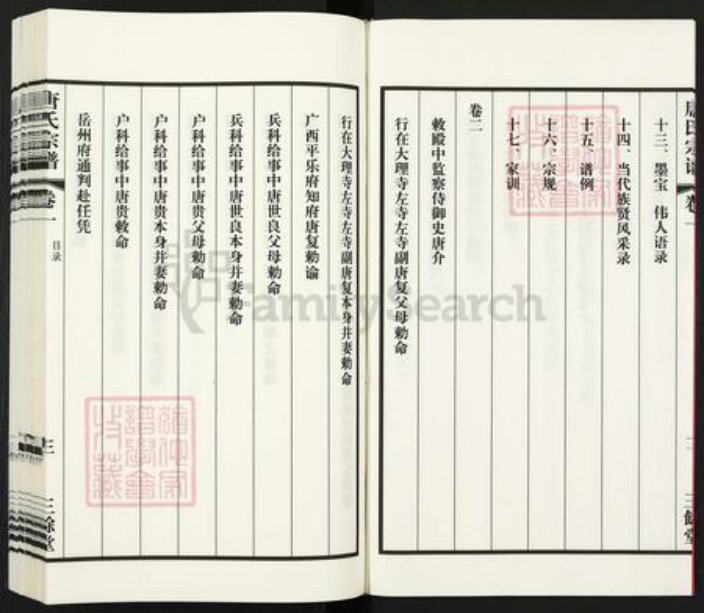 十三、墨宝　伟人语录
十四、当代族贤风采录
十五、谱例
十六、宗规
十七、家训
卷二
敕殿中监察侍御史唐介
行在大理寺左寺左寺副唐复父母勅命
行在大理寺左寺左寺副唐复本身并妻勅命
广西平乐府知府唐复勅谕
兵科给事中唐世良父母勅命
兵科给事中唐世良本身并妻勅命
户科给事中唐贵父母勅命
户科给事中唐贵本身并妻勅命
户科给事中唐贵敕命
岳州府通判赴任凭
唐氏宗谱
卷一
目录
三
三馀堂
FamilySearch